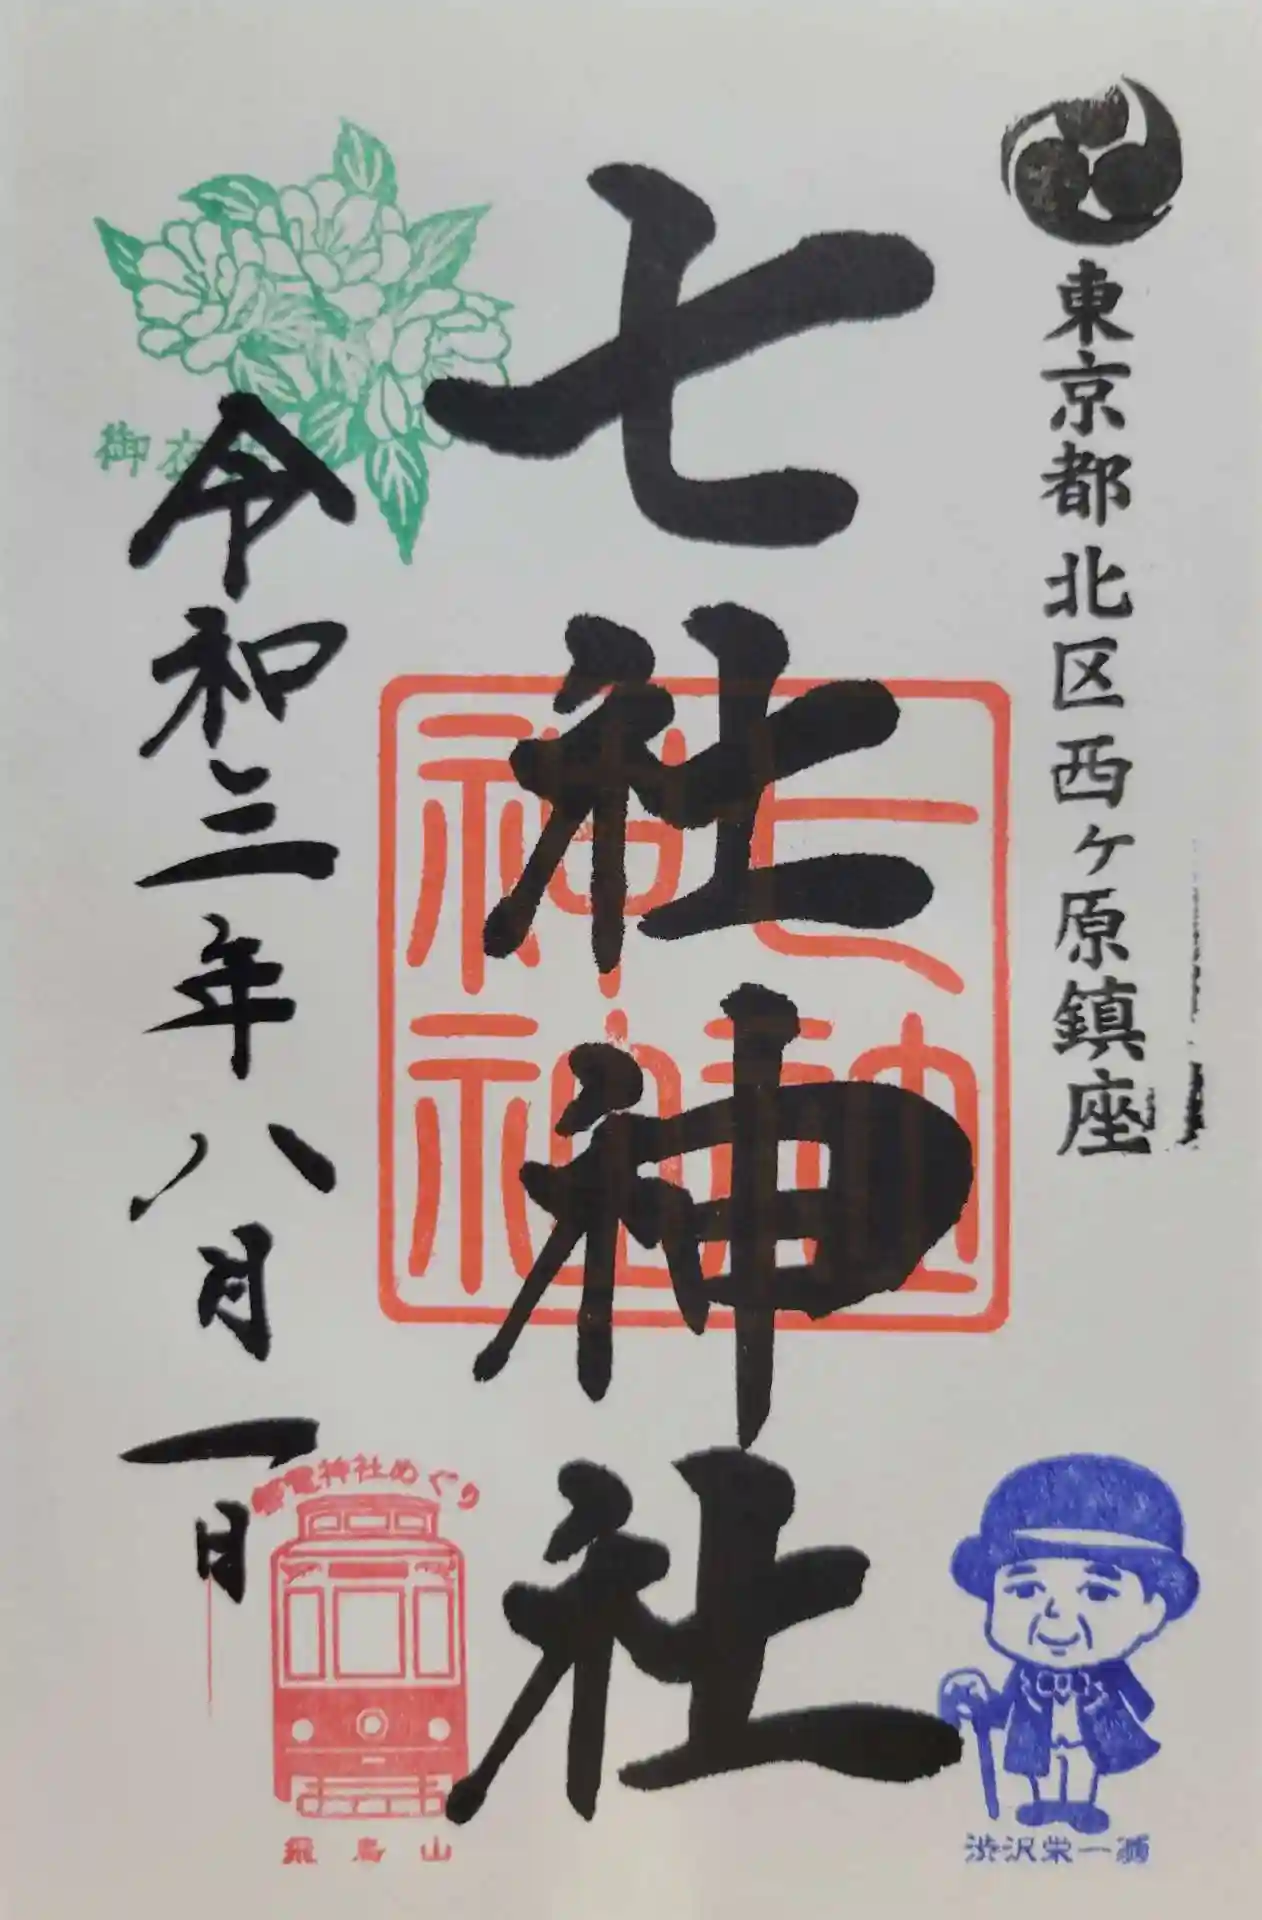 東京都北区西ヶ原鎮座
七社神社
七社神社
令和三年八月一日
御衣
電神社めぐり
飛鳥山
渋沢栄一翁